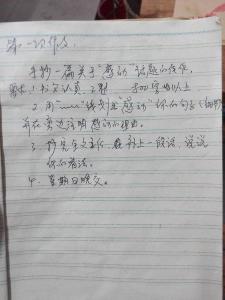 第一次作文。
手抄一篇关于“感动”话题的佳作,
要求:1.书写认真、工整 500字以上
2.用“﹏﹏”线划出“感动”你的句子(细节)
并在旁边注明感动的理由。
3.抄完全文之后,在补上一段话,说说
你的看法。
4.星期日晚交。